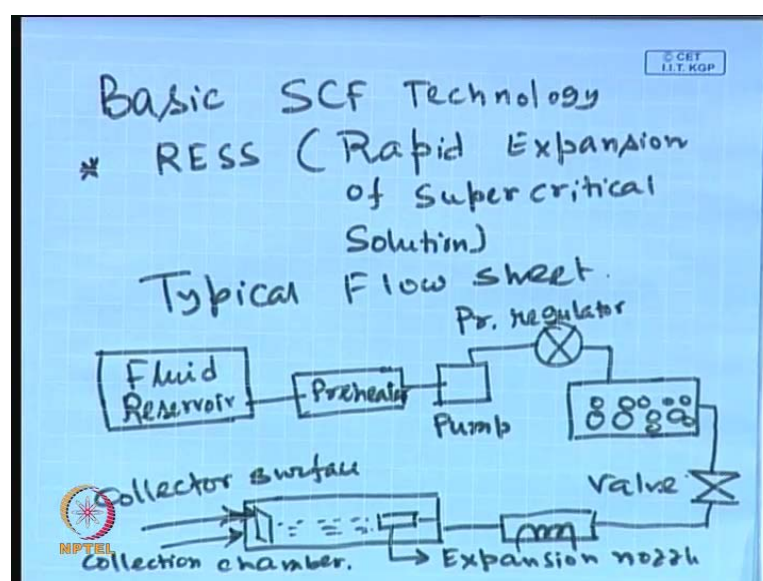 © CET
I.I.T. KGP
Basic SCF Technology
* RESS (Rapid Expansion
of supercritical
Solution)
Typical Flow sheet.
Pr. regulator
Fluid
Reservoir
Preheater
Pump
Valve
Collector surface
Collection chamber.
Expansion nozzle
NPTEL